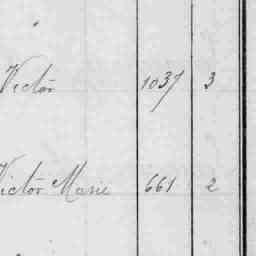 "
Victor 1037 3
Victor Marie 661 2